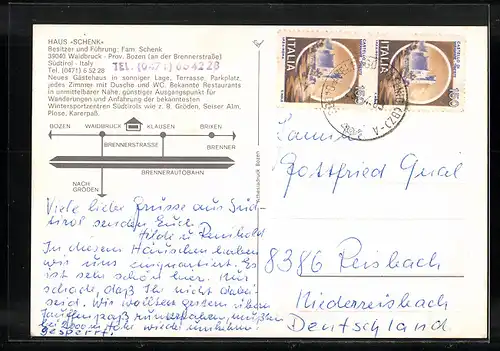 HAUS «SCHENK»
Besitzer und Führung: Fam. Schenk
39040 Waidbruck - Prov. Bozen (an der Brennerstraße)
Südtirol - Italy
Tel. (0471) 6 52 28
TEL. (0471) 65 42 28
Neues Gästehaus in sonniger Lage, Terrasse, Parkplatz,
jedes Zimmer mit Dusche und WC. Bekannte Restaurants
in unmittelbarer Nähe, günstiger Ausgangspunkt für
Wanderungen und Anfahrung der bekanntesten
Wintersportzentren Südtirols wie z. B. Gröden, Seiser Alm,
Plose, Karerpaß.
BOZEN WAIDBRUCK KLAUSEN BRIXEN
BRENNERSTRASSE BRENNER
BRENNERAUTOBAHN
NACH
GRÖDEN
Viele liebe Grüsse aus Süd-
tirol senden Euch
Hilde u. Reinhold
In diesem Häuschen haben
wir uns einquartiert. Es
ist sehr schön hier. Nur
schade, daß Ihr nicht dabei
seid. Wir wollten gestern übern
Jaufenpaß rüberfahren, mußten
bei 2000m Höhe wieder umkehren.
gesperrt.
Bozen
ITALIA
ITALIA
Familie
Gottfried
8386 Reisbach
Niederreisbach
Deutschland